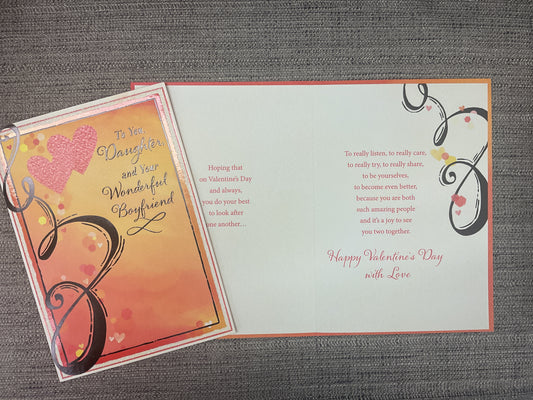 To You,
Daughter,
and Your
Wonderful
Boyfriend
Hoping that
on Valentine's Day
and always,
you do your best
to look after
one another...
To really listen, to really care,
to really try, to really share,
to be yourselves,
to become even better,
because you are both
such amazing people
and it's a joy to see
you two together.
Happy Valentine's Day
with Love